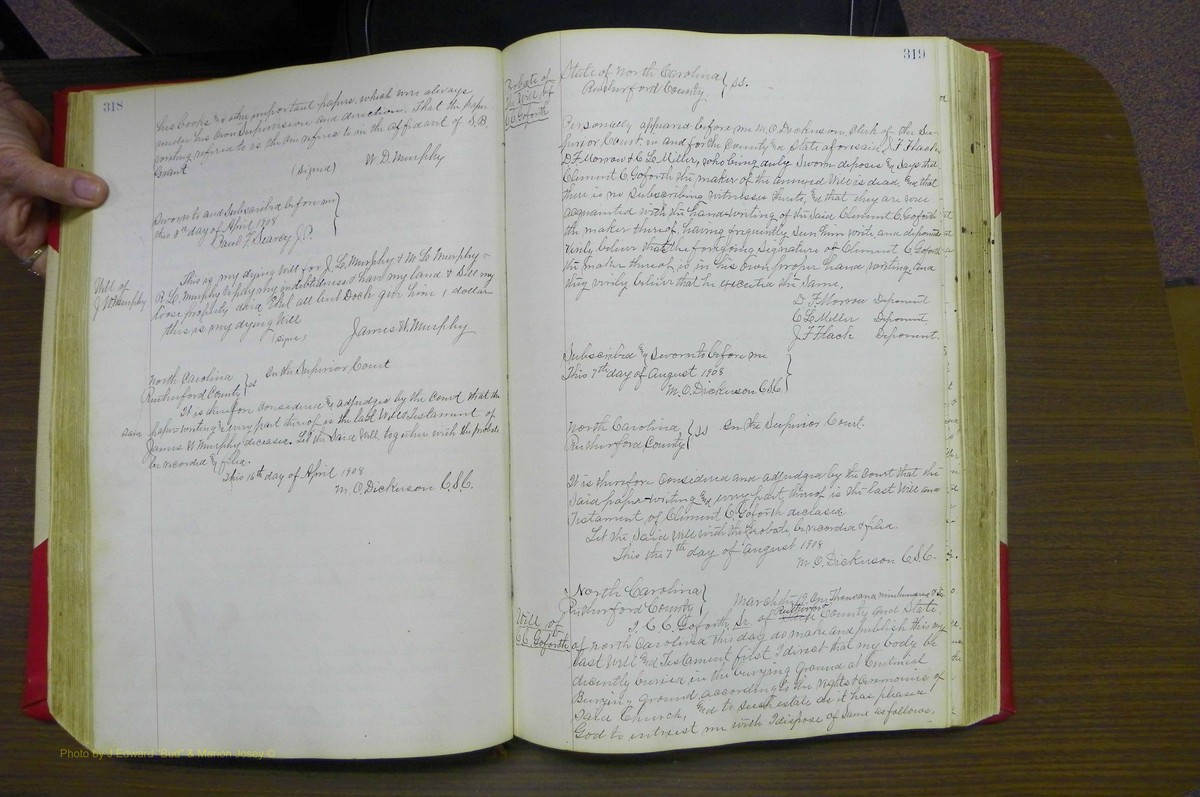 318
his books & other important papers, which were always
under his own supervision and direction. That the paper
writing referred to is the one referred to in the affidavit of S.B.
Grant
(signed) W. D. Murphy
Sworn to and subscribed before me
this 8th day of April 1908
Paul F. Searcy J.P.
Will of
J W Murphy
This is my dying Will for J. L. Murphy & M L Murphy &
R. L. Murphy to pay my indebtedness & have my land & sell my
loose property and all but Dock give him 1 dollar
this is my dying Will
(signed) James W. Murphy
North Carolina
Rutherford County } ss In the Superior Court
It is therefore Considered & adjudged by the Court that the
said paper-writing & every part thereof is the last Will & Testament of
James W Murphy deceased. Let the said Will together with the probate
be recorded & filed.
This 16th day of April 1908
M. O. Dickerson C.S.C.
319
Probate of
the Will of
C C Goforth
State of North Carolina
Rutherford County } ss.
Personally appeared before me M. O. Dickerson, Clerk of the Su-
perior Court, in and for the County & State aforesaid, J F Flack
D. F. Morrow & C L Miller, who being duly sworn deposes & says that
Clement C Goforth the maker of the annexed Will is dead, and that
there is no subscribing witnesses thereto, & that they are well
acquainted with the hand-writing of the said Clement C. Goforth
the maker thereof, having frequently seen him write, and deponents
verily believe that the foregoing signature of Clement C Goforth
the maker thereof is in his own proper hand writing, and
they verily believe that he executed the same.
D F Morrow Deponent
C L Miller Deponent
J F Flack Deponent.
Subscribed & Sworn to before me
This 7th day of August 1908
M. O. Dickerson C.S.C.
North Carolina
Rutherford County } ss In the Superior Court.
It is therefore Considered and adjudged by the Court that the
said paper-writing & every part thereof is the last Will and
Testament of Clement C. Goforth deceased
Let the said Will with the Probate, be recorded & filed.
This the 7th day of August 1908
M. O. Dickerson C.S.C.
Will of
C C Goforth
North Carolina
Rutherford County } March the 19 One Thousand nine hundred &
I, C. C. Goforth, Sr. of Rutherford County and State
of North Carolina this day do make and publish this my
last Will and Testament first I direct that my body be
decently buried in the burying ground at Centennial
Burying ground according to the rights & ceremonies of
said Church, and to such estate as it has pleased
God to intrust me with I dispose of same as follows,
Photo by J Edward "Bud" & Marion Josey ©